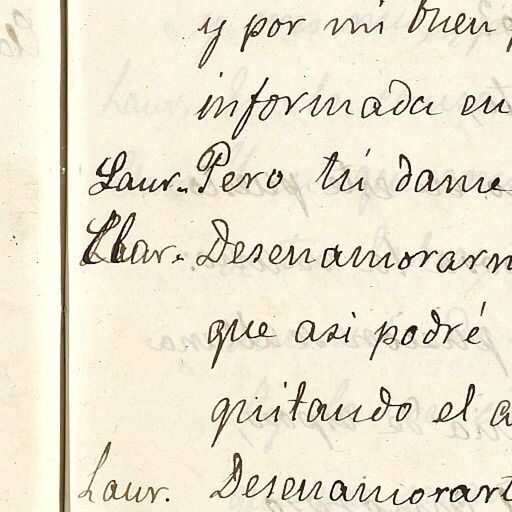 y por mi buen
informada en
Laur. Pero tú dame
Clar. Desenamorarm
que asi podré
quitando el a
Laur. Desenamorart